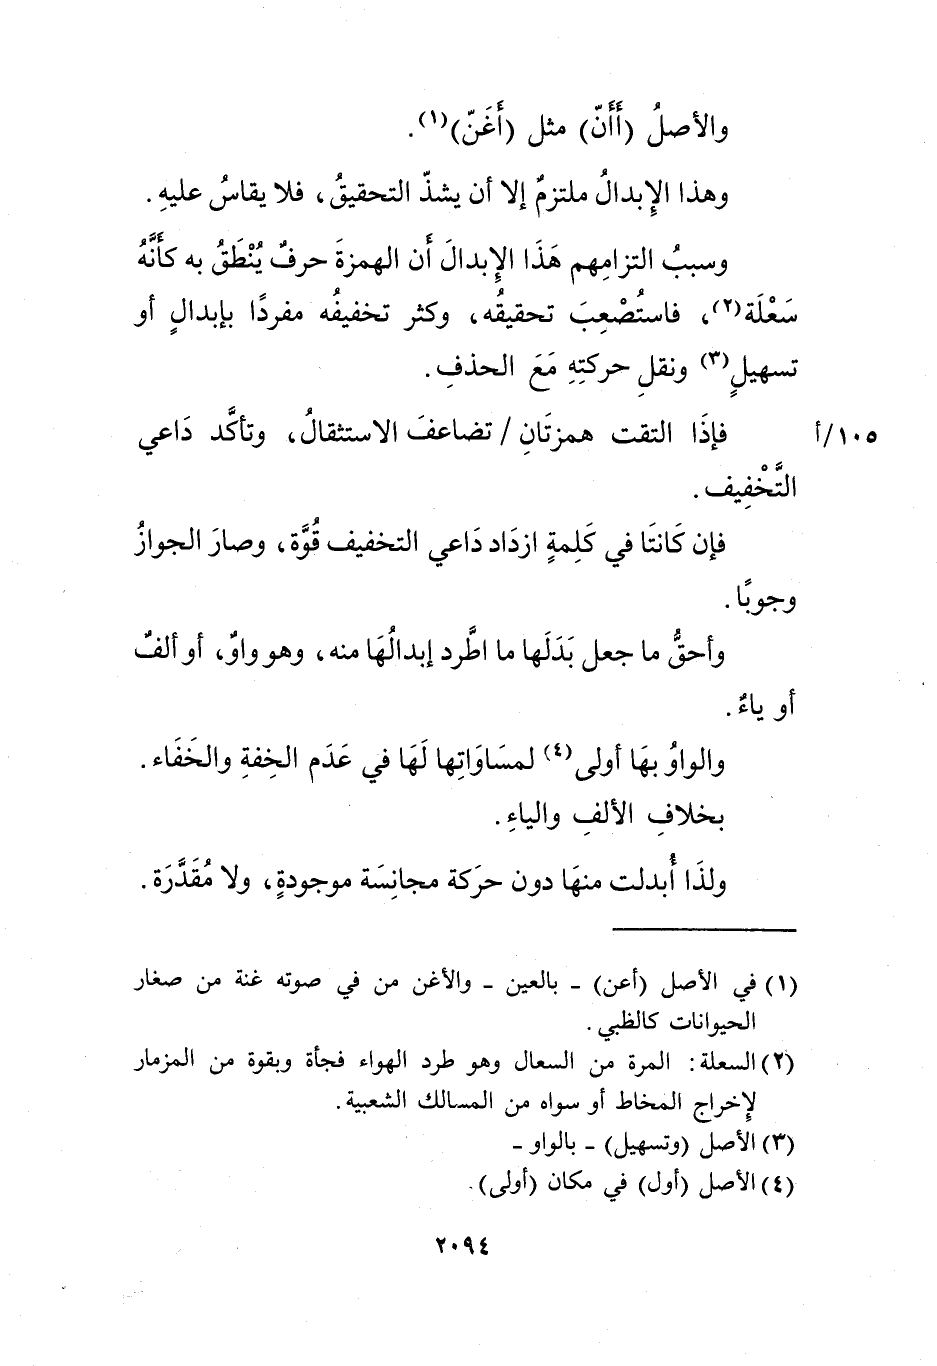 والأصلُ (أَأَنّ) مثل (أَغَنّ)(١).
وهذا الإِبدالُ ملتزمٌ إلا أن يشذّ التحقيقُ، فلا يقاسُ عليهِ.
وسببُ التزامِهم هَذَا الإِبدالَ أَن الهمزةَ حرفٌ يُنْطَقُ به كأَنَّهُ
سَعْلَة(٢)، فاستُصْعِبَ تحقيقُه، وكثر تخفيفُه مفردًا بإبدالٍ أو
تسهيلٍ(٣) ونقلِ حركتِهِ مَعَ الحذفِ.
فإذَا التقت همزتَانِ / تضاعفَ الاستثقالُ، وتأكَّد دَاعي ١٠٥/أ
التَّخْفِيف.
فإن كَانتَا في كَلِمةٍ ازدَاد دَاعي التخفيف قُوَّة، وصارَ الجوازُ
وجوبًا.
وأحقُّ ما جعل بَدَلَها ما اطَّرد إبدالُهَا منه، وهو واوٌ، أو ألفٌ
أو ياءٌ.
والواوُ بهَا أولى(٤) لمسَاوَاتِها لَهَا في عَدَم الخِفةِ والخَفَاء.
بخلافِ الألفِ والياءِ.
ولذَا أُبدلت منهَا دون حرَكة مجانِسَة موجودةٍ، ولا مُقَدَّرَة.
(١) في الأصل (أعن) - بالعين - والأغن من في صوته غنة من صغار
الحيوانات كالظبي.
(٢) السعلة: المرة من السعال وهو طرد الهواء فجأة وبقوة من المزمار
لإخراج المخاط أو سواه من المسالك الشعبية.
(٣) الأصل (وتسهيل) - بالواو -
(٤) الأصل (أول) في مكان (أولى).
٢٠٩٤